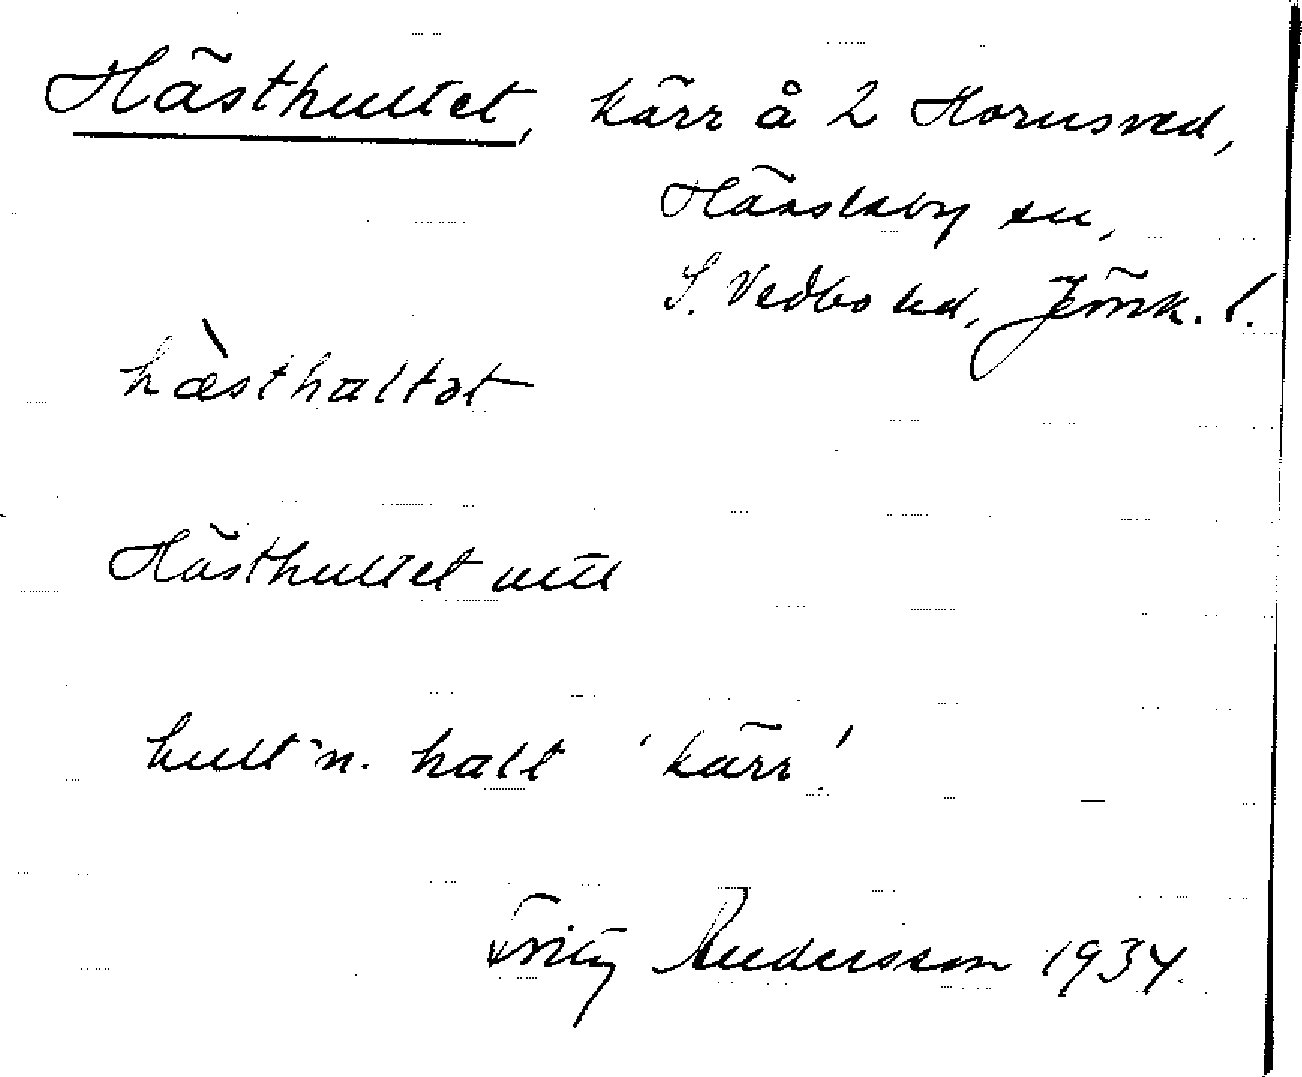 Hästhultet, kärr å 2 Hornsved,
Hässleby sn,
S. Vedbo hd, Jönk. l.
hæ̀sthaltət
Hästhultet
hult n. halt 'kärr'.
Fritz Andersson 1934.